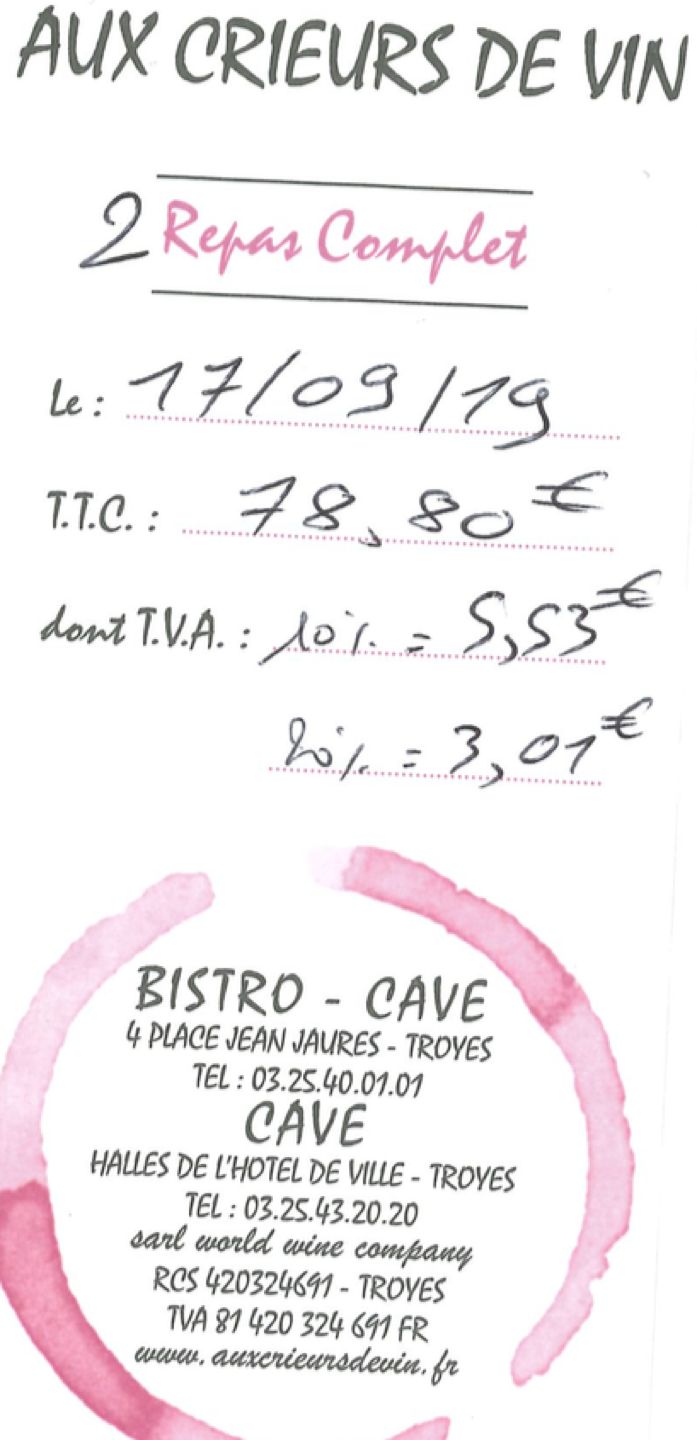 AUX CRIEURS DE VIN
2 Repas Complet
Le : 17/09/19
T.T.C. : 78,80€
dont T.V.A. : 10% = 5,53€
20% = 3,01€
BISTRO - CAVE
4 PLACE JEAN JAURES - TROYES
TEL : 03.25.40.01.01
CAVE
HALLES DE L'HOTEL DE VILLE - TROYES
TEL : 03.25.43.20.20
sarl world wine company
RCS 420324691 - TROYES
TVA 81 420 324 691 FR
www.auxcrieursdevin.fr